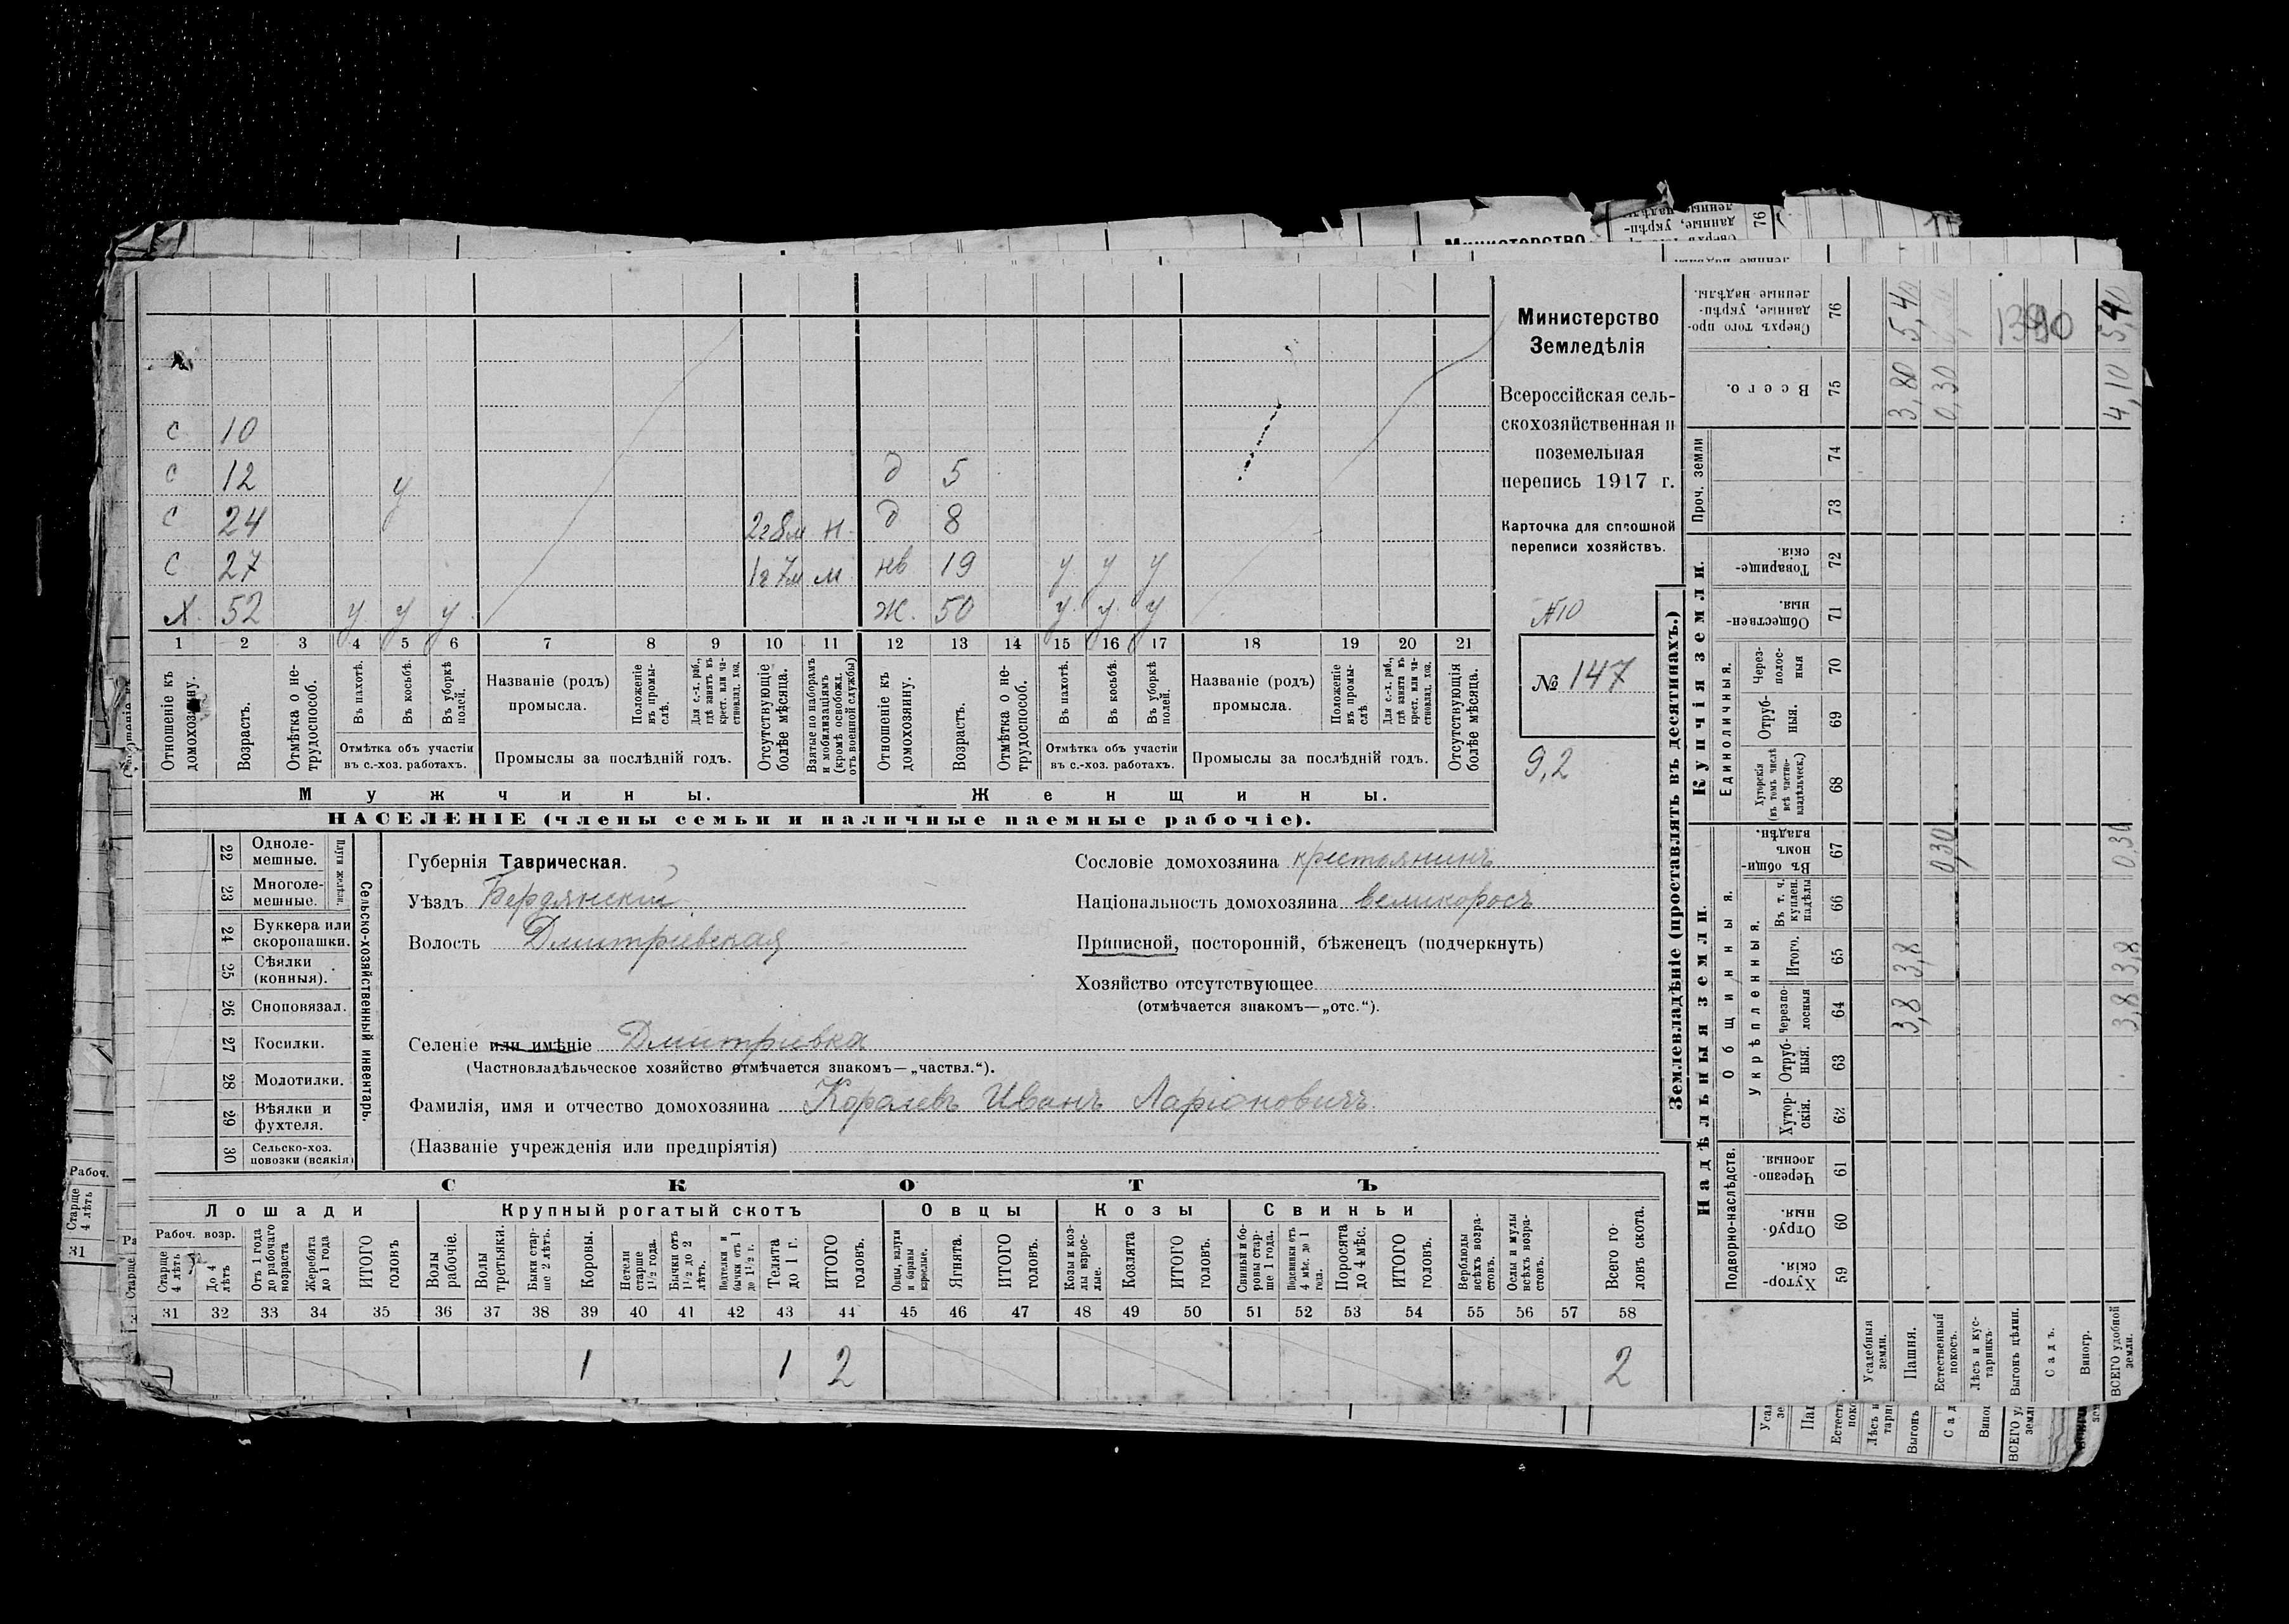 Министерство
Земледѣлія
Всероссійская сель-
скохозяйственная и
поземельная
перепись 1917 г.
Карточка для сплошной
переписи хозяйствъ.
№ 147
9,2
с 10
с 12 у д 5
с 24 2г 8м н. д 8
с 27 1г 7м м нв 19 у у у
х. 52 у у у ж. 50 у. у. у
1 2 3 4 5 6 7 8 9 10 11 12 13 14 15 16 17 18 19 20 21
Отношеніе къ домохозяину.
Возрастъ.
Отмѣтка о не-трудоспособ.
Въ пахотѣ.
Въ косьбѣ.
Въ уборкѣ полей.
Отмѣтка объ участіи
въ с.-хоз. работахъ.
Названіе (родъ)
промысла.
Положеніе въ промы-слѣ.
Для с.-х. раб., гдѣ занятъ въ крест. или ча-стновлад. хоз.
Промыслы за послѣдній годъ.
Отсутствующіе болѣе мѣсяца.
Взятые по наборамъ и мобилизаціямъ (кромѣ освобожд. отъ военной службы)
Отношеніе къ домохозяину.
Возрастъ.
Отмѣтка о не-трудоспособ.
Въ пахотѣ.
Въ косьбѣ.
Въ уборкѣ полей.
Отмѣтка объ участіи
въ с.-хоз. работахъ.
Названіе (родъ)
промысла.
Положеніе въ промы-слѣ.
Для с.-х. раб., гдѣ занята въ крест. или ча-стновлад. хоз.
Промыслы за послѣдній годъ.
Отсутствующія болѣе мѣсяца.
Мужчины.
Женщины.
НАСЕЛЕНІЕ (члены семьи и наличные наемные рабочіе).
22 Одноле-мешные.
23 Многоле-мешные.
Плуги желѣзн.
24 Буккера или скоропашки.
25 Сѣялки (конныя).
26 Сноповязал.
27 Косилки.
28 Молотилки.
29 Вѣялки и фухтеля.
30 Сельско-хоз. повозки (всякія)
Сельско-хозяйственный инвентарь.
Губернія Таврическая.
Уѣздъ Бердянскій
Волость Дмитріевская
Сословіе домохозяина крестьянинъ
Національность домохозяина великоросъ
Приписной, посторонній, бѣженецъ (подчеркнуть)
Хозяйство отсутствующее
(отмѣчается знакомъ—„отс.“).
Селеніе или имѣніе Дмитріевка
(Частновладѣльческое хозяйство отмѣчается знакомъ—„частвл.“).
Фамилія, имя и отчество домохозяина Королевъ Иванъ Ларіоновичъ
(Названіе учрежденія или предпріятія)
СКОТЪ
Лошади
Крупный рогатый скотъ
Овцы
Козы
Свиньи
Рабоч. возр.
Старше 4 лѣтъ
До 4 лѣтъ
Отъ 1 года до рабочаго возраста
Жеребята до 1 года
ИТОГО головъ
Волы рабочіе.
Волы третьяки.
Быки стар-ше 2 лѣтъ.
Коровы.
Нетели старше 1½ года.
Бычки отъ 1½ до 2 лѣтъ.
Подтелки и бычки отъ 1 до 1½ г.
Телята до 1 г.
ИТОГО головъ.
Овцы, валухи и бараны взрослые.
Ягнята.
ИТОГО головъ.
Козы и коз-лы взрос-лые.
Козлята
ИТОГО головъ.
Свиньи и бо-ровы стар-ше 1 года.
Подсвинки отъ 4 мѣс. до 1 года.
Поросята до 4 мѣс.
ИТОГО головъ.
Верблюды всѣхъ возра-стовъ.
Ослы и мулы всѣхъ возра-стовъ.
Всего го-ловъ скота.
31 32 33 34 35 36 37 38 39 40 41 42 43 44 45 46 47 48 49 50 51 52 53 54 55 56 57 58
1 1 2 2
Землевладѣніе (проставлять въ десятинахъ.)
Надѣльныя земли.
Купчія земли.
Проч. земли
Подворно-наслѣдств.
Общинныя.
Укрѣпленныя.
Единоличныя.
59 Хутор-скія.
60 Отруб-ныя.
61 Черезпо-лосныя.
62 Хутор-скія.
63 Отруб-ныя.
64 Черезпо-лосныя
65 Итого.
66 Въ т. ч. куплен. надѣлы
67 Въ общи-номъ владѣн.
68 Хуторскія (въ томъ числѣ всѣ частно-владѣльческ.)
69 Отруб-ныя.
70 Через-полос-ныя
71 Обществен-ныя.
72 Товарище-скія.
73
74
75 Всего.
76 Сверхъ того про-данные, укрѣп-ленные надѣлы.
Усадебныя земли.
Пашня. 3,8 3,8 3,80 5,40
Естественный покосъ. 0,30 0,30
Лѣсъ и кус-тарникъ.
Выгонъ цѣлин.
Садъ.
Виногр.
ВСЕГО удобной земли. 3,8 3,8 0,30 4,10 5,40